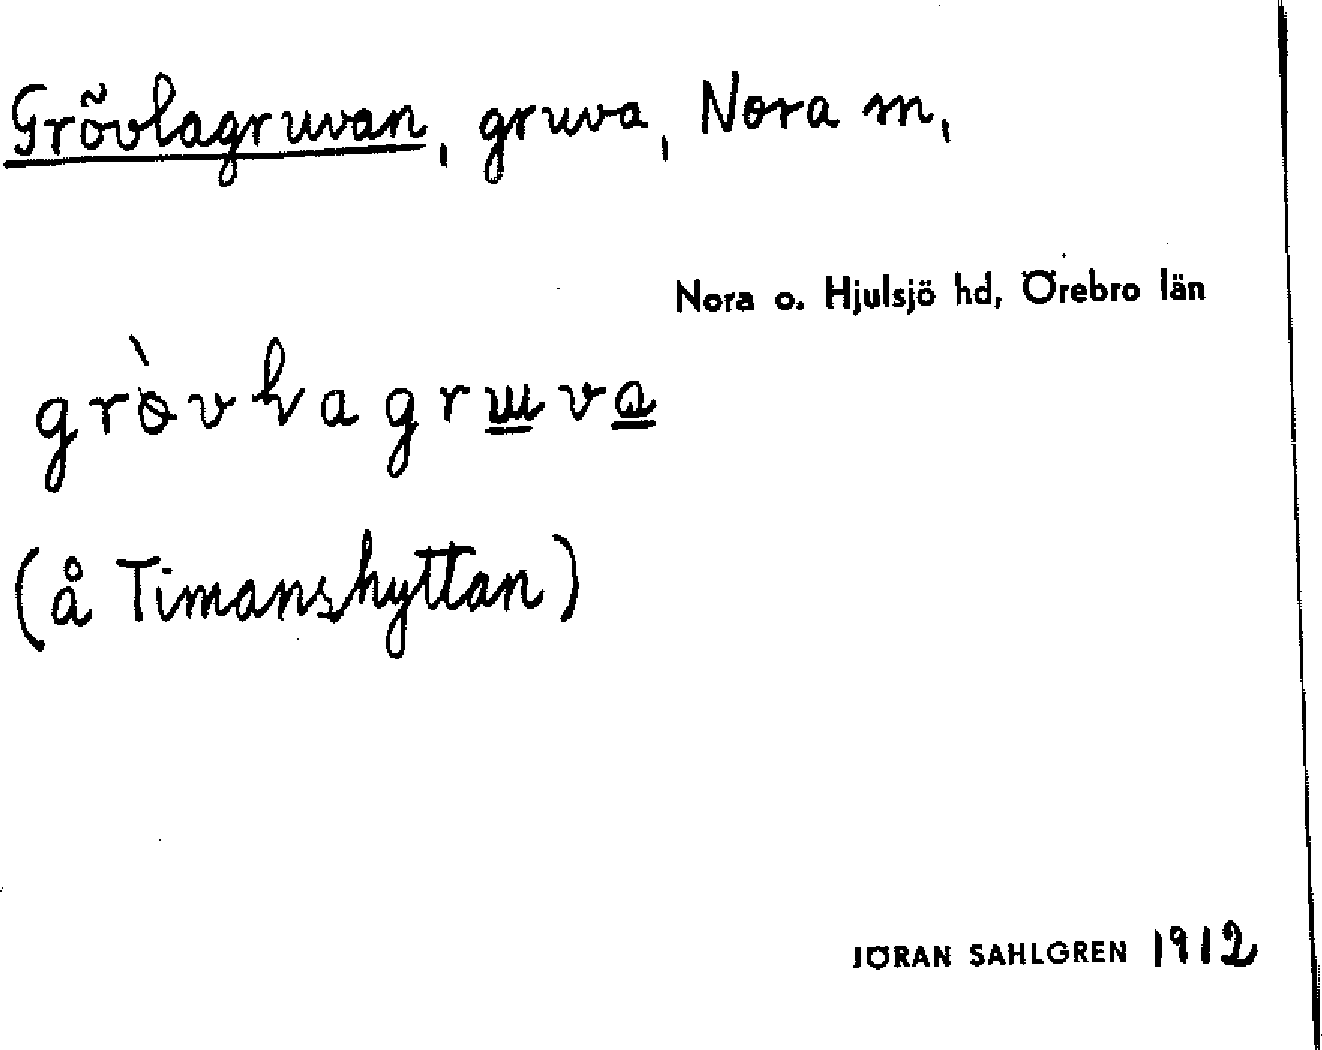 Grövlagruvan, gruva, Nora m,
Nora o. Hjulsjö hd, Örebro län
(å Timanshyttan)
JÖRAN SAHLGREN 1912